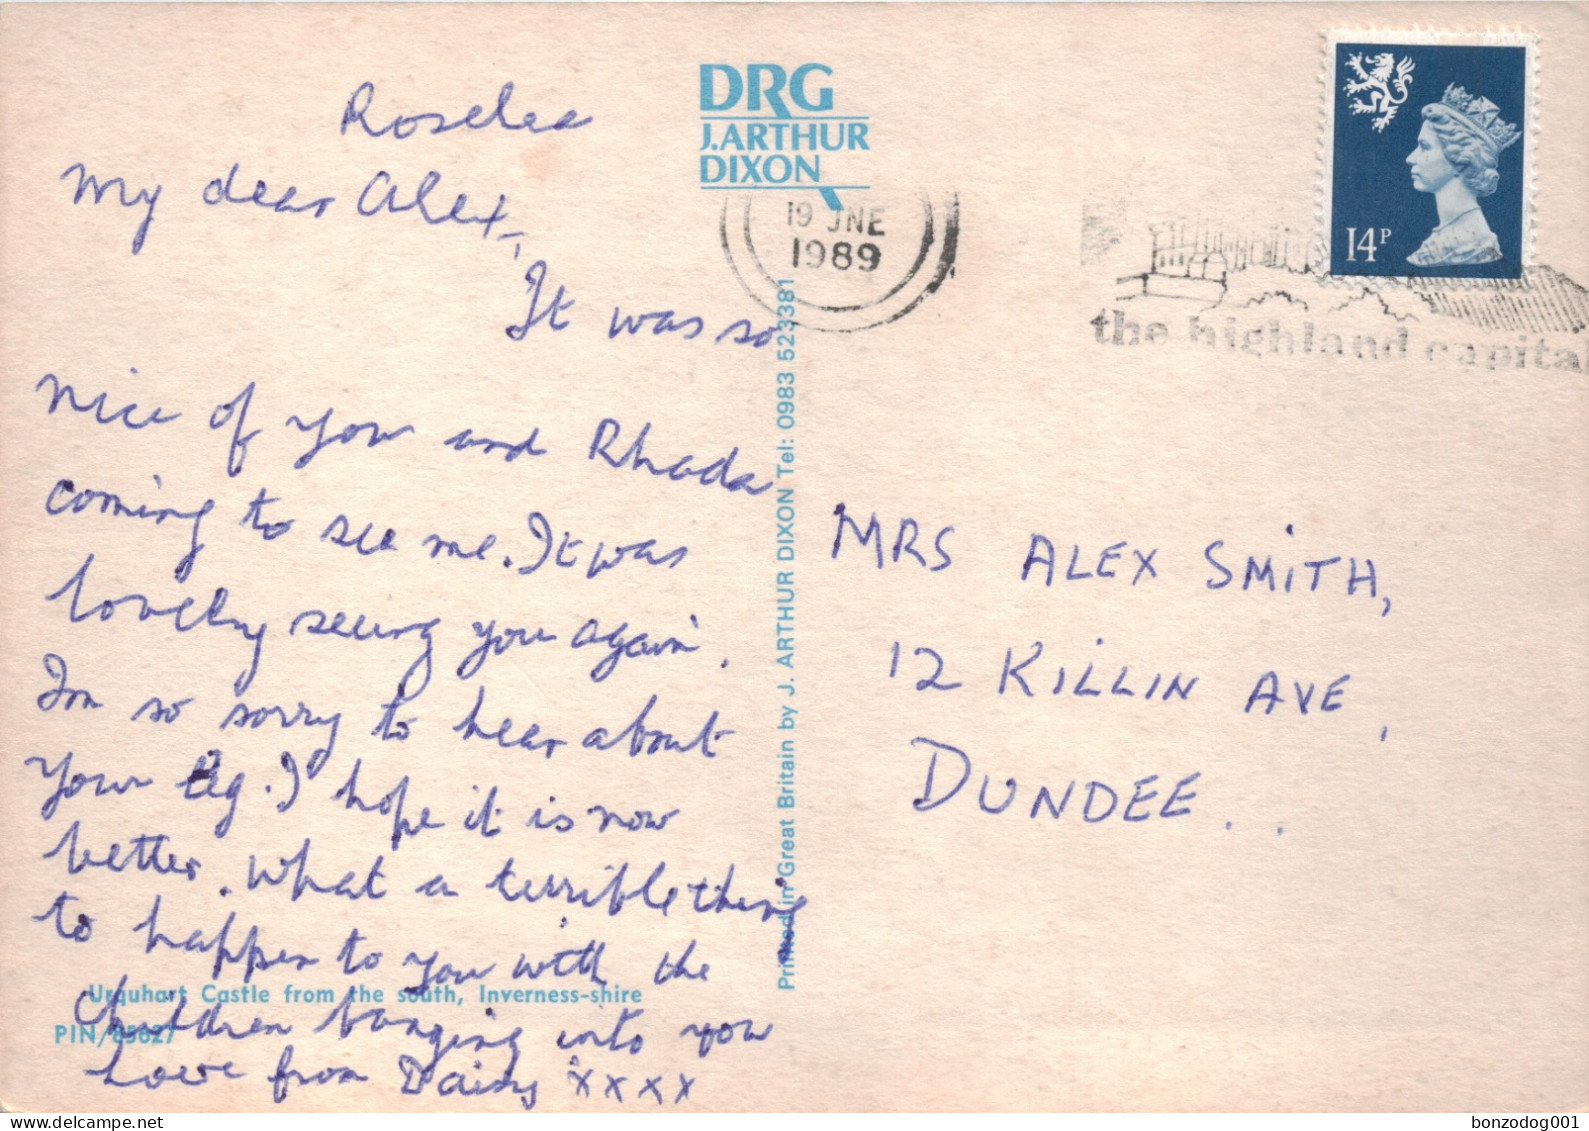 Roselea
My dear Alex,
It was so
nice of you and Rhoda
coming to see me. It was
lovely seeing you again.
Im so sorry to hear about
your leg. I hope it is now
better. What a terrible thing
to happen to you with the
children banging into you
Love from Daisy xxxx
Urquhart Castle from the south, Inverness-shire
PIN/85627
DRG
J.ARTHUR
DIXON
19 JNE
1989
Printed in Great Britain by J. ARTHUR DIXON Tel: 0983 523381
14P
the highland capital
MRS ALEX SMITH,
12 KILLIN AVE,
DUNDEE..
bonzodog001